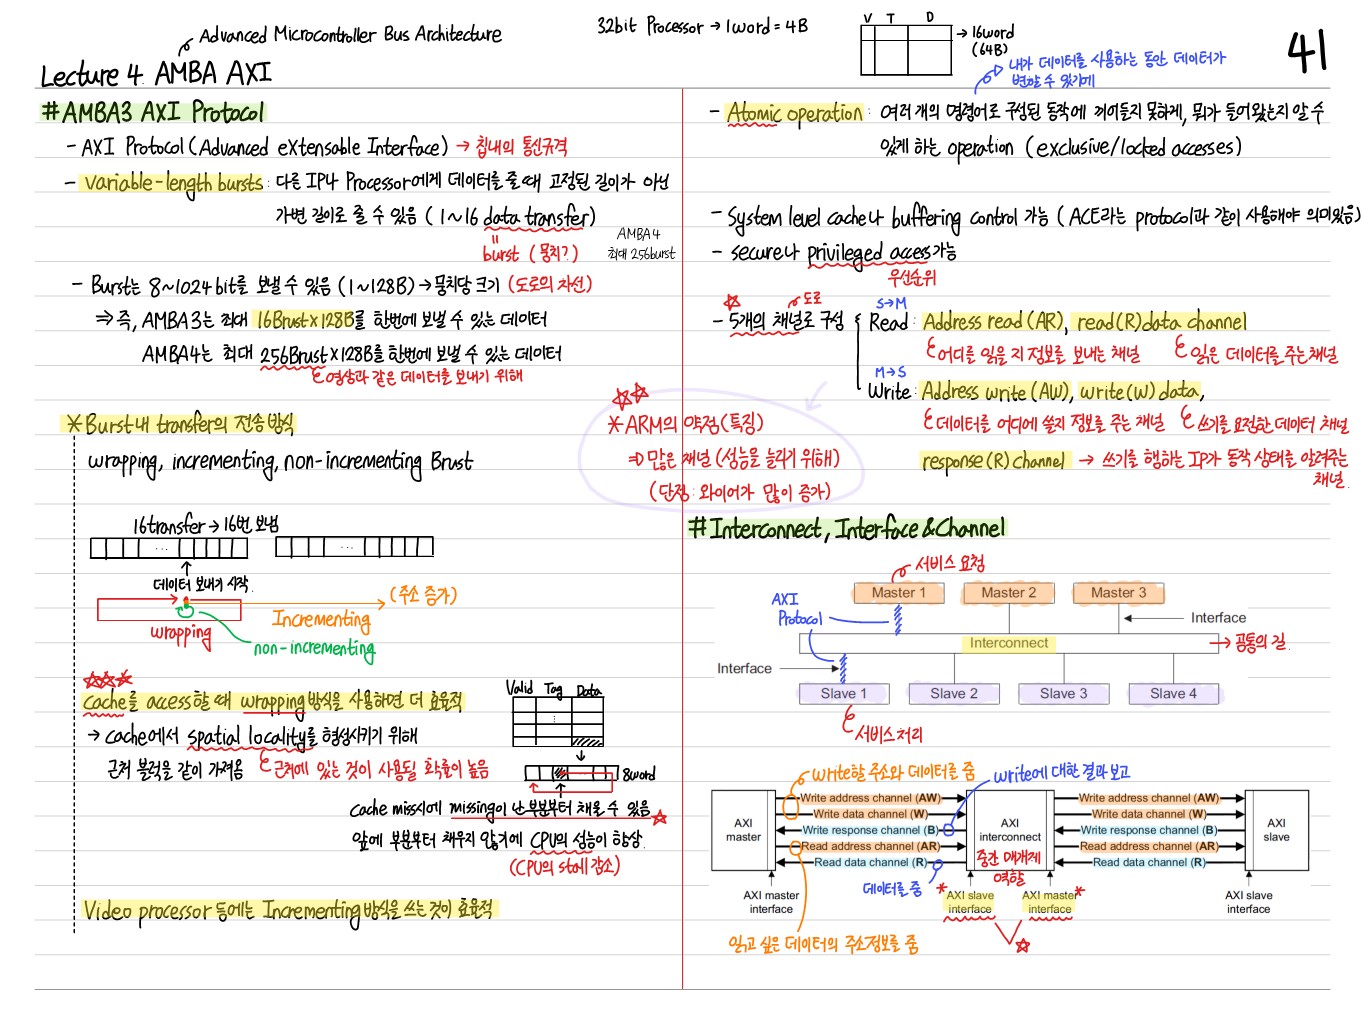 Advanced Microcontroller Bus Architecture
32bit Processor → 1word = 4B
V T D
→ 16word
(64B)
41
Lecture 4. AMBA AXI
내가 데이터를 사용하는 동안 데이터가
변할 수 있기에
#AMBA3 AXI Protocol
- AXI Protocol (Advanced eXtensable Interface) → 칩내의 통신규격
- variable-length bursts : 다른 IP나 Processor에게 데이터를 줄 때 고정된 길이가 아닌
가변 길이로 줄 수 있음 (1~16 data transfer)
burst (뭉치?)
AMBA4
최대 256burst
- Burst는 8~1024bit를 보낼 수 있음 (1~128B) → 뭉치당 크기 (도로의 차선)
⇒ 즉, AMBA3는 최대 16Brust×128B를 한번에 보낼 수 있는 데이터
AMBA4는 최대 256Brust×128B를 한번에 보낼 수 있는 데이터
영상과 같은 데이터를 보내기 위해
* Burst내 transfer의 전송 방식
wrapping, incrementing, non-incrementing Brust
16transfer → 16번 보냄
...
...
데이터 보내기 시작
(주소 증가)
Incrementing
wrapping
non-incrementing
cache를 access할 때 wrapping방식을 사용하면 더 효율적
→ cache에서 spatial locality를 형성시키기 위해
근처 블럭을 같이 가져옴
근처에 있는 것이 사용될 확률이 높음
Valid Tag Data
8word
cache miss시에 missing이 난 부분부터 채울 수 있음
앞에 부분부터 채우지 않기에 CPU의 성능이 향상.
(CPU의 stall 감소)
Video processor 등에는 Incrementing방식을 쓰는 것이 효율적
- Atomic operation : 여러 개의 명령어로 구성된 동작에 끼어들지 못하게, 뭐가 들어왔는지 알 수
있게 하는 operation (exclusive/locked accesses)
- System level cache나 buffering control 가능 (ACE라는 protocol과 같이 사용해야 의미있음)
- secure나 privileged access가능
우선순위
도로
- 5개의 채널로 구성
S→M
Read : Address read (AR), read (R) data channel
어디를 읽을 지 정보를 보내는 채널
읽은 데이터를 주는 채널
M→S
Write : Address write (AW), write (W) data,
데이터를 어디에 쓸지 정보를 주는 채널
쓰기를 요청한 데이터 채널
response (R) channel → 쓰기를 행하는 IP가 동작 상태를 알려주는
채널.
* ARM의 약점(특징)
⇒ 많은 채널 (성능을 늘리기 위해)
(단점 : 와이어가 많이 증가)
#Interconnect, Interface & Channel
서비스 요청
Master 1
Master 2
Master 3
AXI
Protocol
Interface
Interconnect
→ 공통의 길.
Interface
Slave 1
Slave 2
Slave 3
Slave 4
서비스 처리
write할 주소와 데이터를 줌
write에 대한 결과 보고
AXI
master
Write address channel (AW)
Write data channel (W)
Write response channel (B)
Read address channel (AR)
Read data channel (R)
AXI
interconnect
중간 매개체
역할
Write address channel (AW)
Write data channel (W)
Write response channel (B)
Read address channel (AR)
Read data channel (R)
AXI
slave
데이터를 줌
AXI master
interface
* AXI slave
interface
AXI master *
interface
AXI slave
interface
읽고 싶은 데이터의 주소정보를 줌